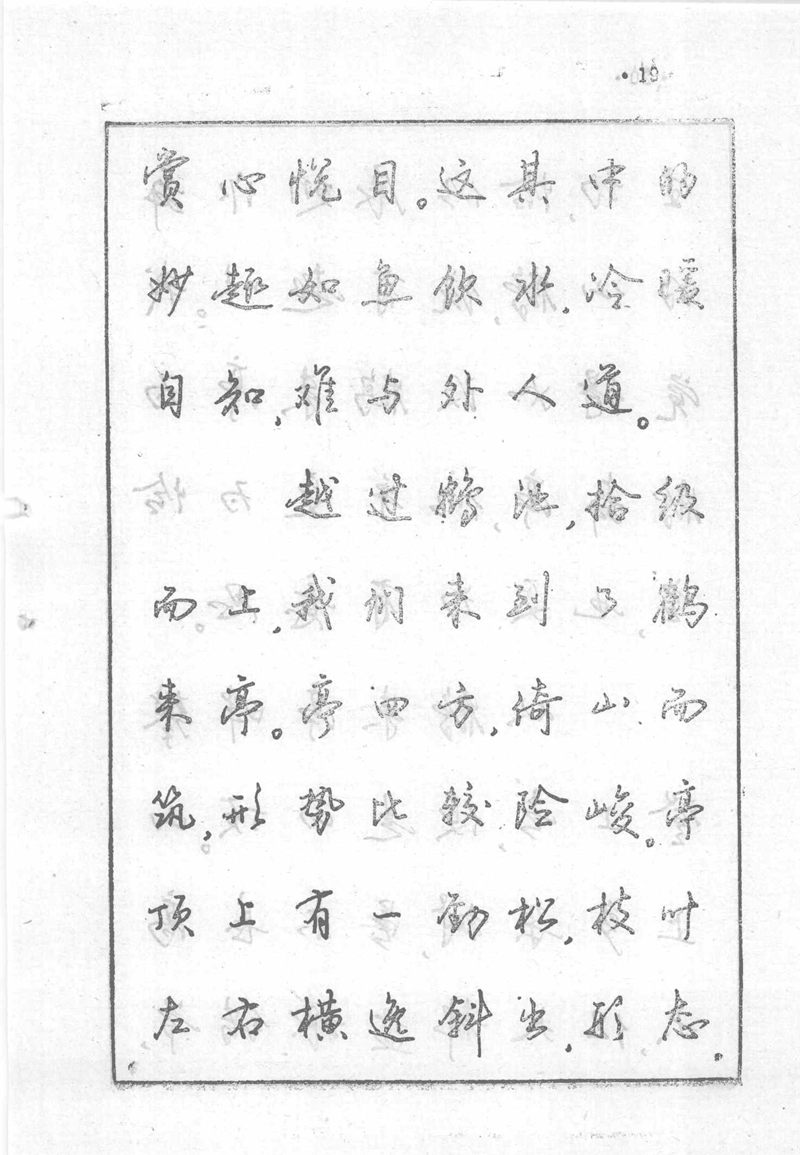 19
赏心悦目。这其中的
妙趣如鱼饮水,冷暖
自知,难与外人道。
越过鹤池,拾级
而上,我们来到了鹤
来亭。亭四方,倚山而
筑,形势比较险峻。亭
顶上有一劲松,枝叶
左右横逸斜出,形态